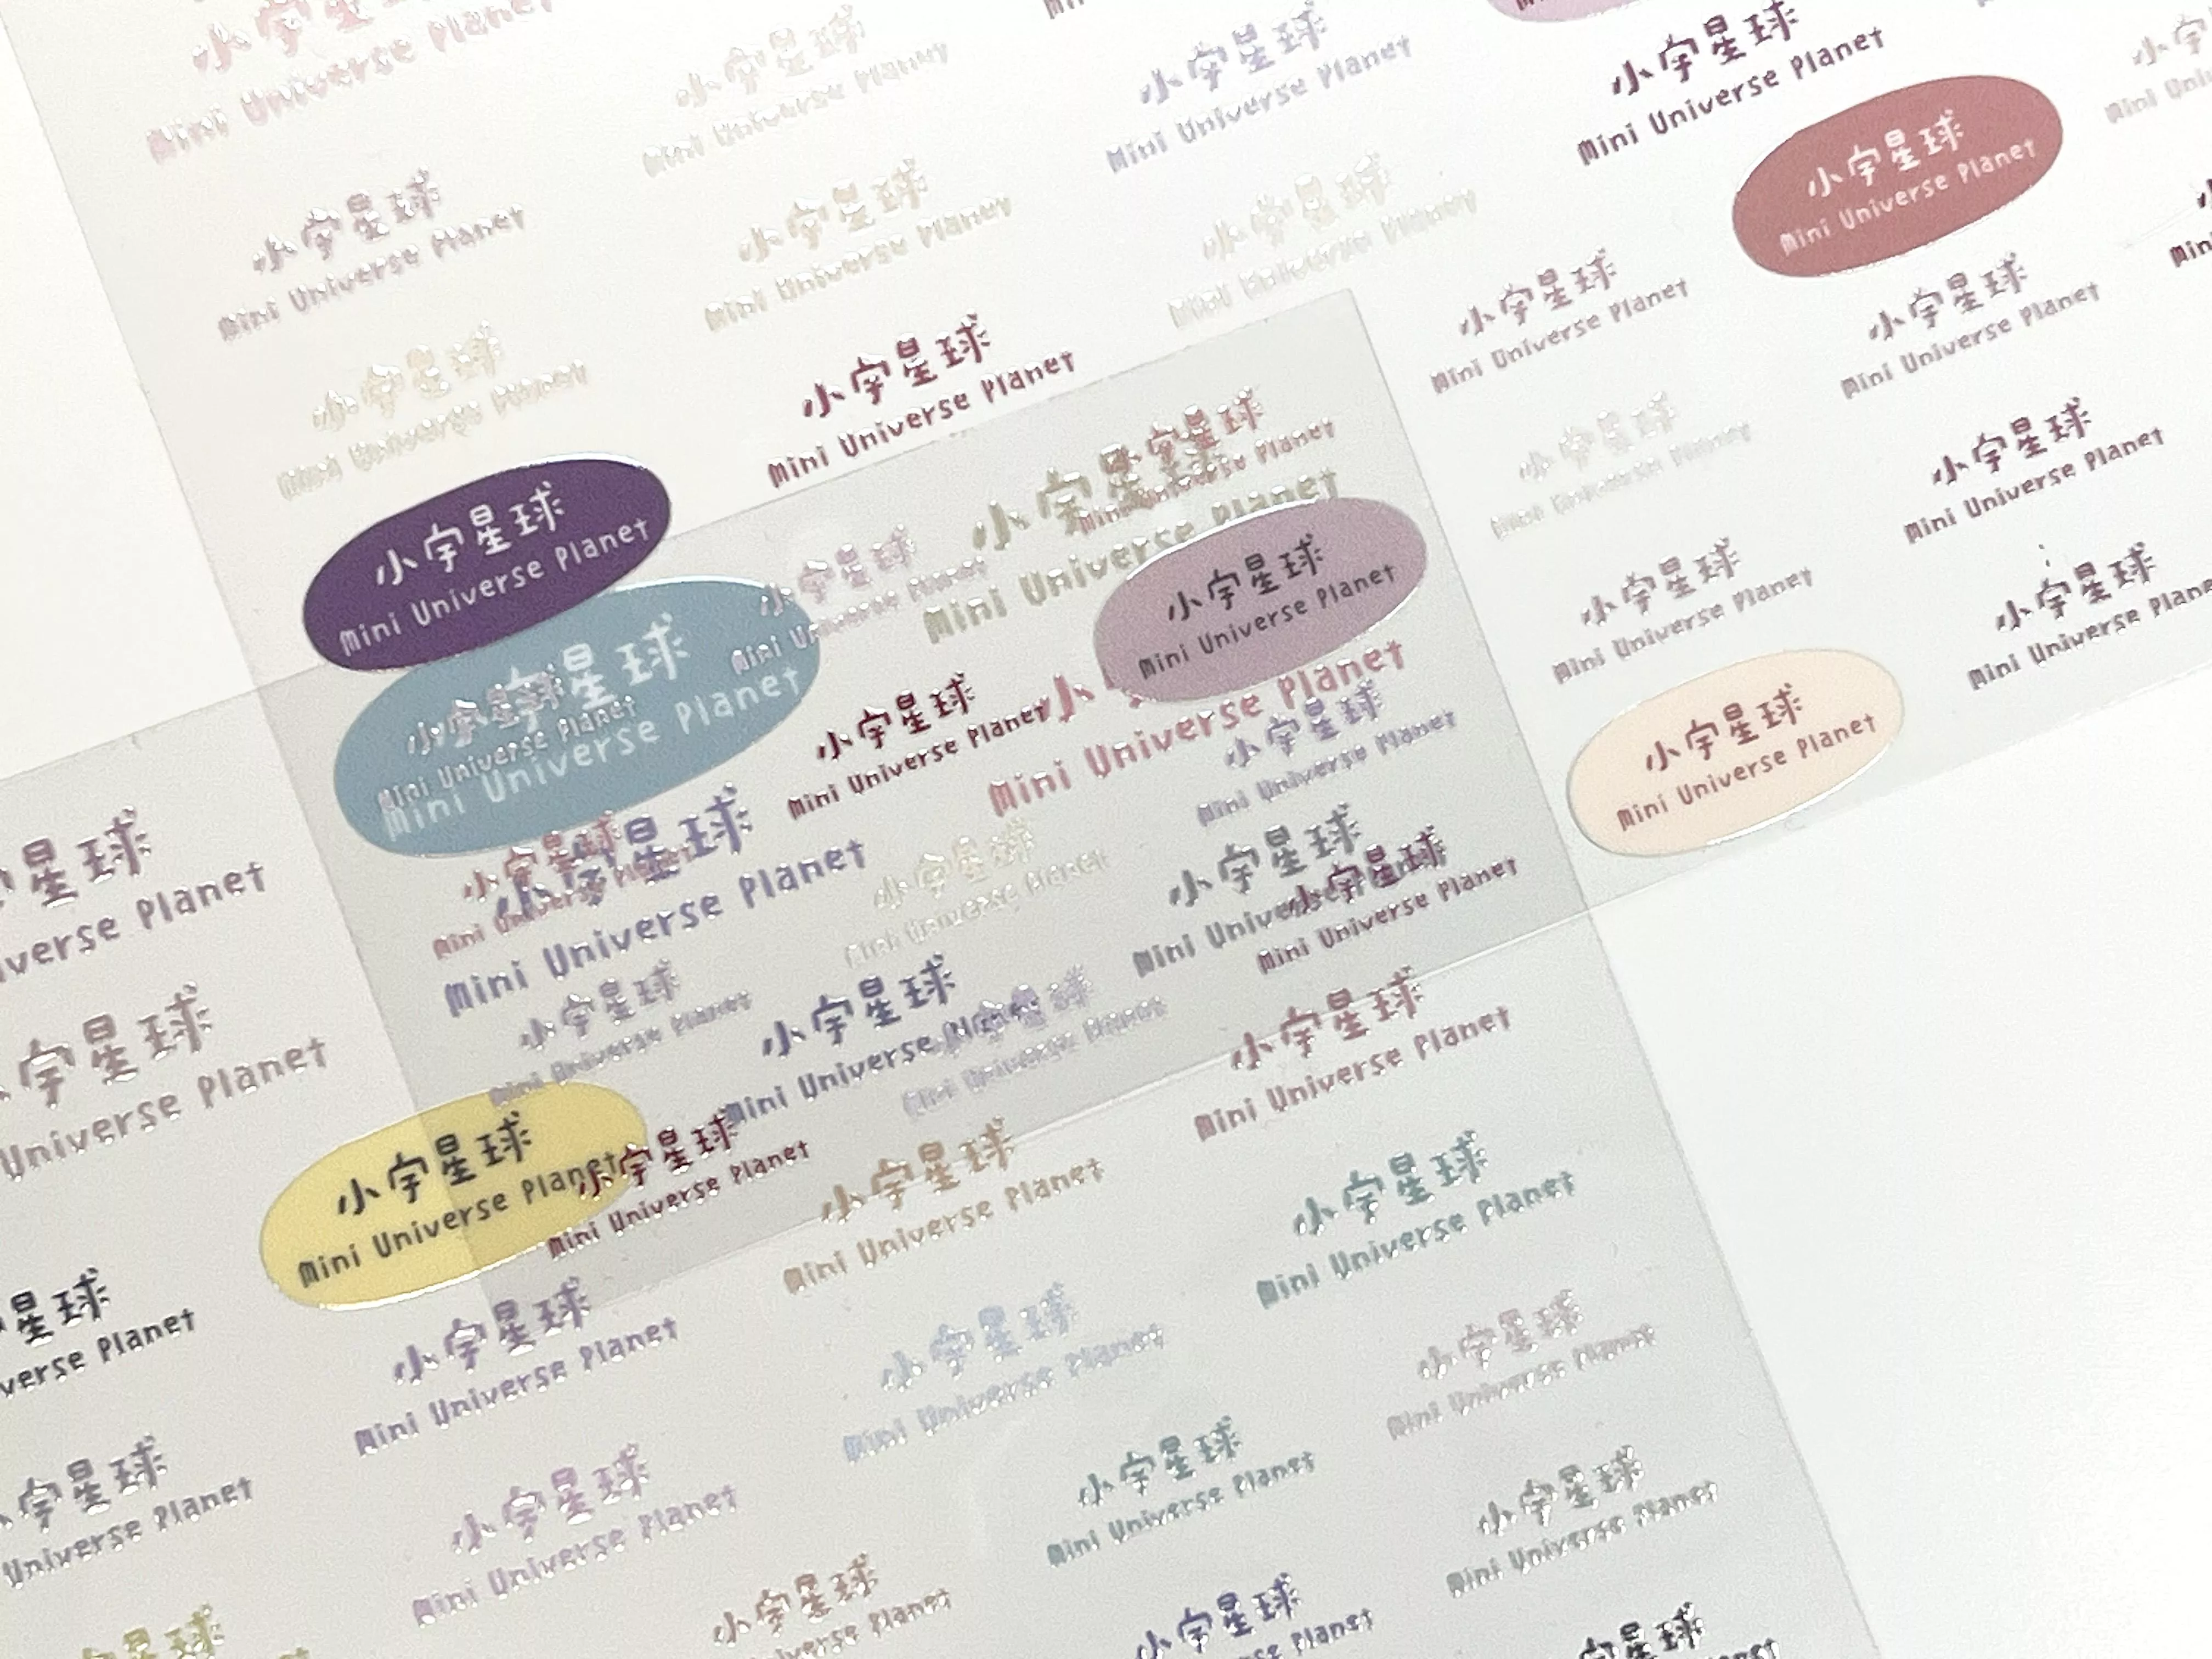 小宇星球
Mini Universe Planet
小宇星球
Mini Universe Planet
小宇星球
Mini Universe Planet
小宇星球
Mini Universe Planet
小宇星球
Mini Universe Planet
小宇星球
Mini Universe Planet
小宇星球
Mini Universe Planet
小宇星球
Mini Universe Planet
小宇星球
Mini Universe Planet
小宇星球
Mini Universe Planet
小宇星球
Mini Universe Planet
小宇星球
Mini Universe Planet
小宇星球
Mini Universe Planet
小宇星球
Mini Universe Planet
小宇星球
Mini Universe Planet
小宇星球
Mini Universe Planet
小宇星球
Mini Universe Planet
小宇星球
Mini Universe Planet
小宇星球
Mini Universe Planet
小宇星球
Mini Universe Planet
小宇星球
Mini Universe Planet
小宇星球
Mini Universe Planet
小宇星球
Mini Universe Planet
小
Mini Universe Planet
小宇星球
Mini Universe Planet
小宇星球
Mini Universe Planet
小宇星球
Mini Universe Planet
小宇星球
Mini Universe Planet
小宇星球
Mini Universe Planet
星球
Planet
宇星球
Universe Planet
小宇星球
Mini Universe Planet
小宇星球
Mini Universe Planet
小宇星球
Mini Universe Planet
小宇星球
Mini Universe Planet
小宇星球
Mini Universe Planet
小宇星球
Mini Universe Planet
星球
Planet
小宇星球
Mini Universe Planet
小宇星球
Mini Universe Planet
小宇星球
Mini Universe Planet
宇星球
Universe Planet
小宇星球
Mini Universe Planet
小宇星球
Mini Universe Planet
小宇星球
Mini Universe Planet
星球
小宇星球
Planet
小宇星球
Planet
宇星球